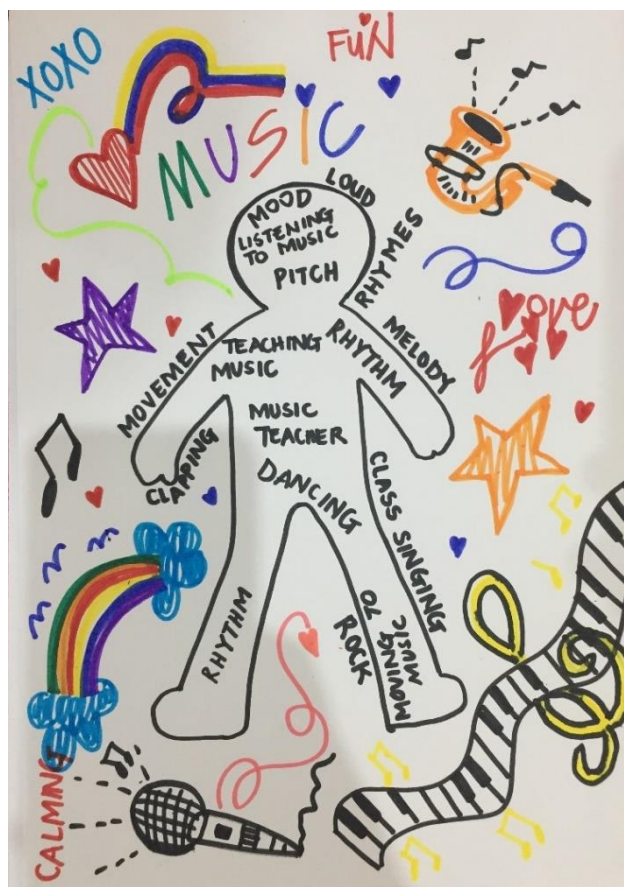 XOXO
FUN
MUSIC
LOUD
MOOD
LISTENING
TO MUSIC
PITCH
RHYMES
MOVEMENT
TEACHING
MUSIC
RHYTHM
MELODY
love
MUSIC
TEACHER
CLAPPING
DANCING
CLASS SINGING
RHYTHM
ROCK
MOVING TO
MUSIC
CALMING